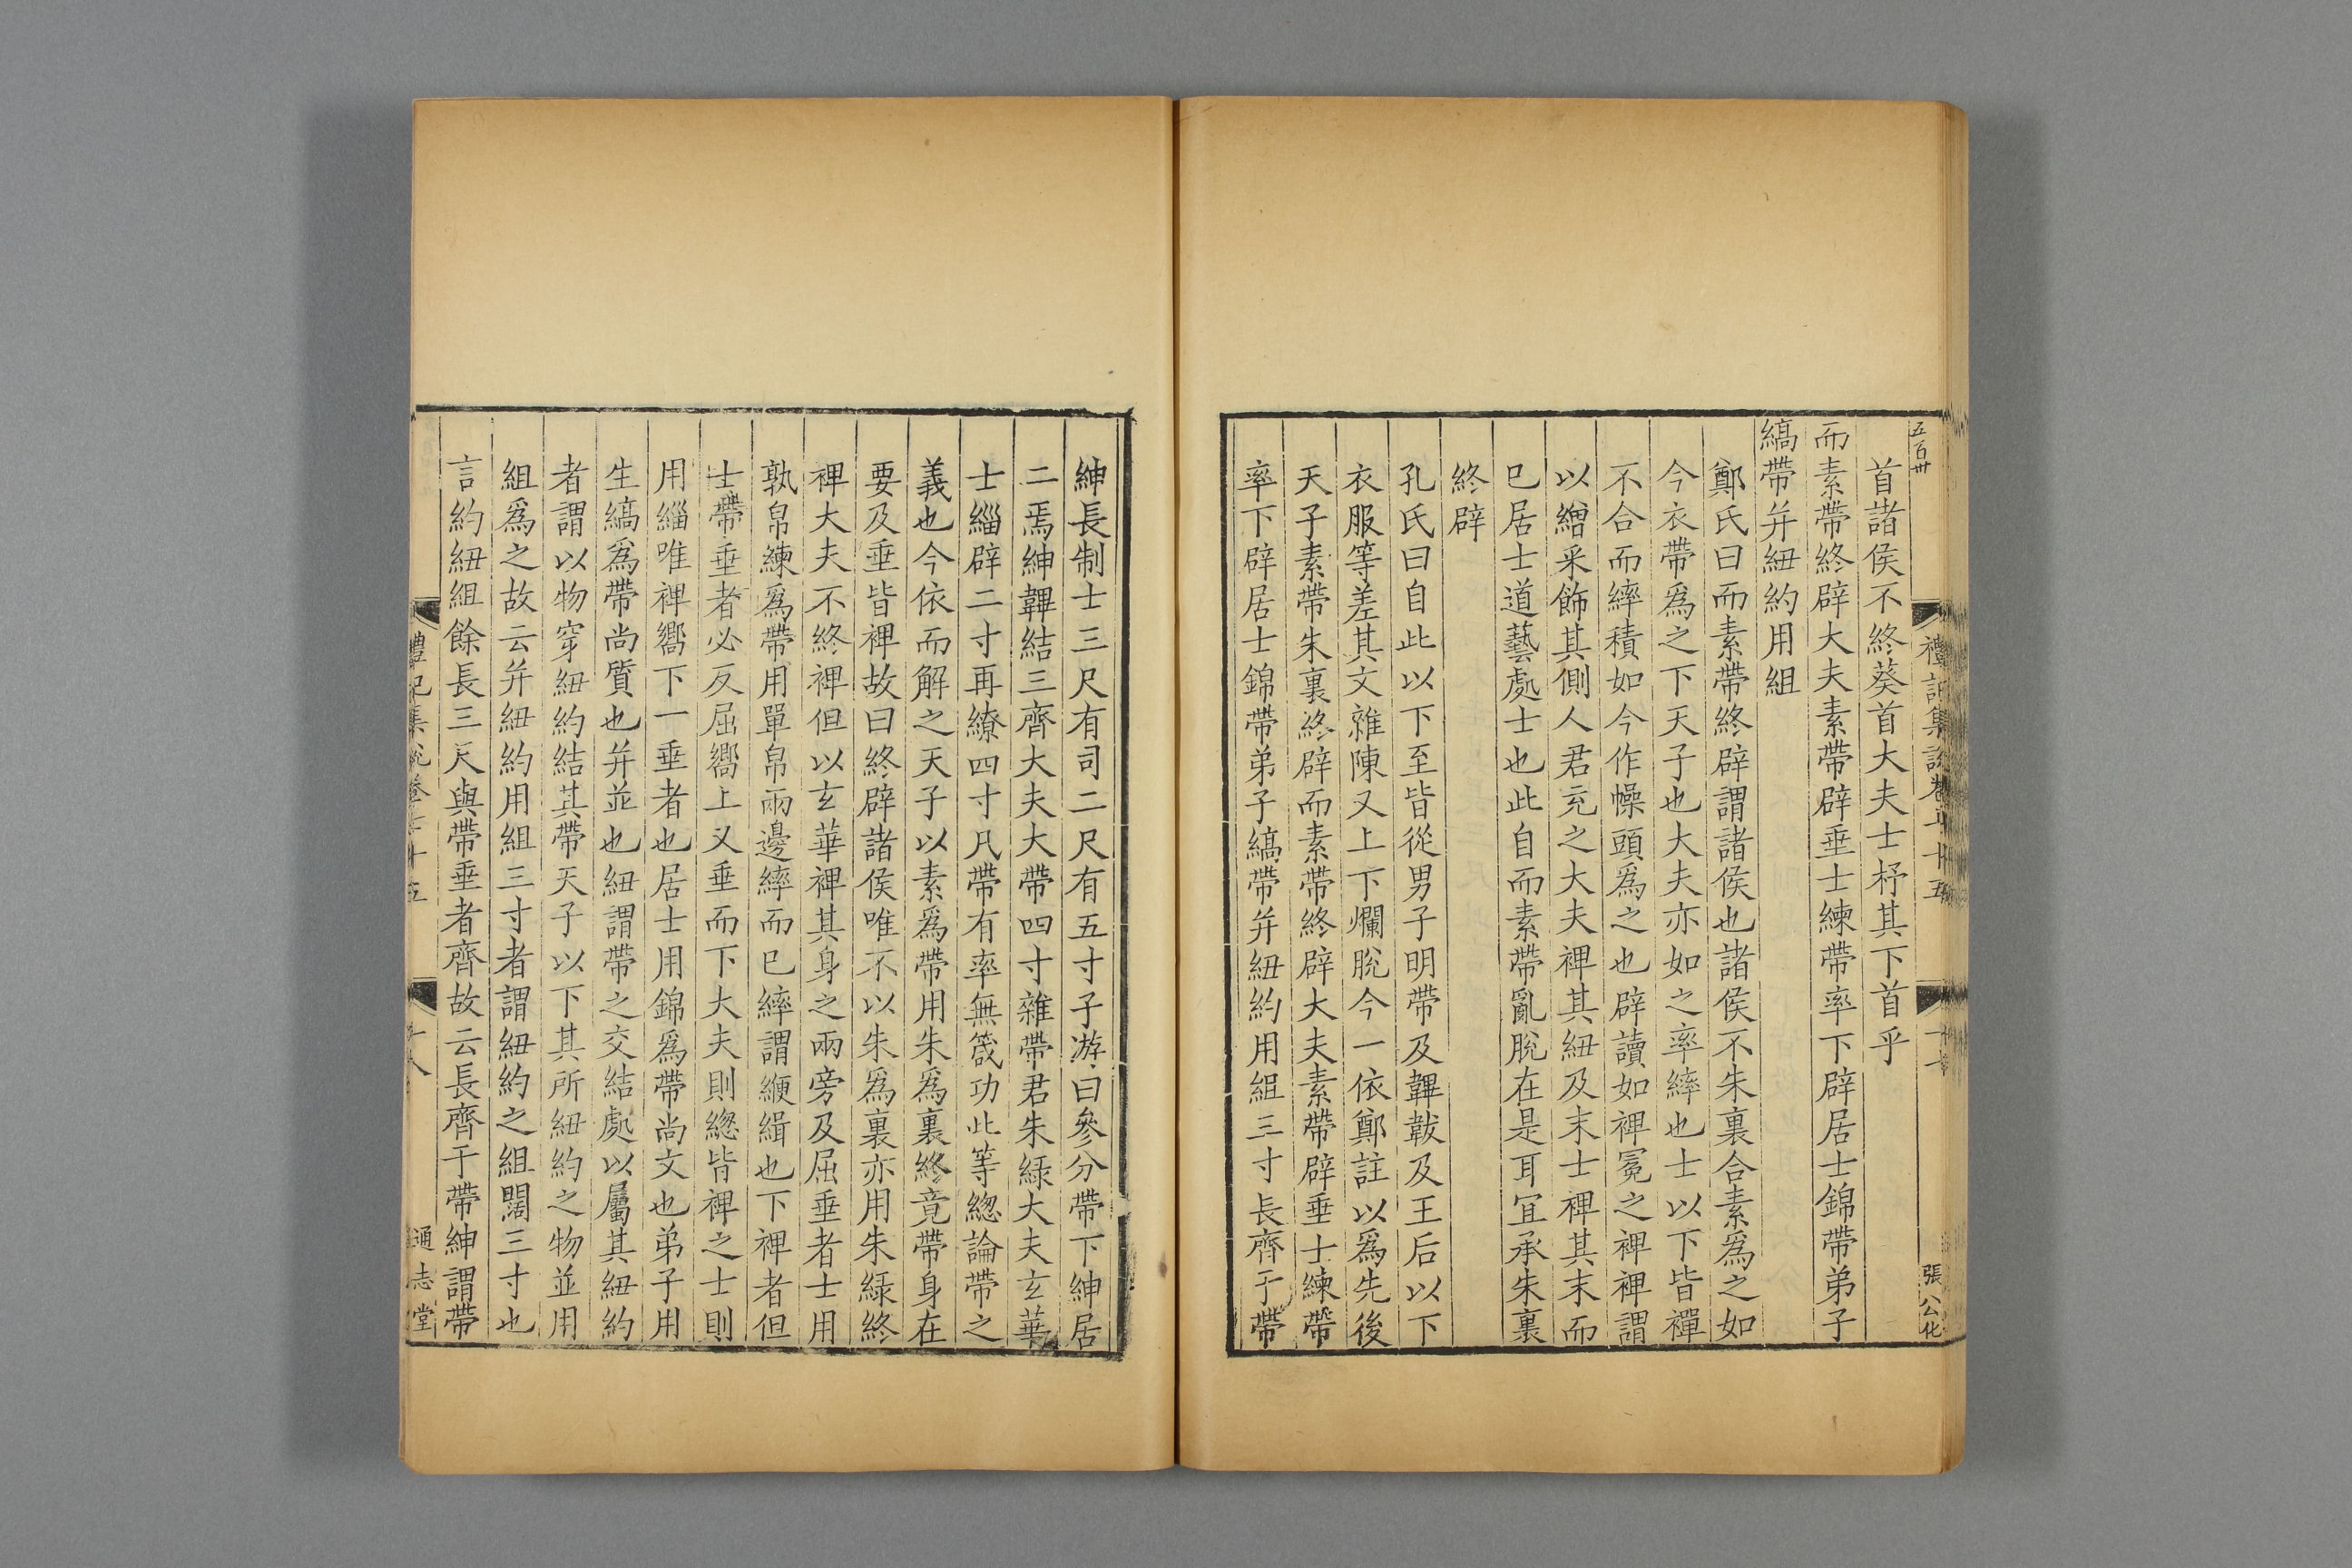 五百卅
禮記集說卷七十五
十七
張公化
首諸侯不終葵首大夫士杼其下首乎
而素帶終辟大夫素帶辟垂士練帶率下辟居士錦帶弟子
縞帶并紐約用組
鄭氏曰而素帶終辟謂諸侯也諸侯不朱裏合素爲之如
今衣帶爲之下天子也大夫亦如之率繂也士以下皆襌
不合而繂積如今作幧頭爲之也辟讀如裨冕之裨裨謂
以繒采飾其側人君充之大夫裨其紐及末士裨其末而
已居士道藝處士也此自而素帶亂脫在是耳宜承朱裏
終辟
孔氏曰自此以下至皆從男子明帶及韠韍及王后以下
衣服等差其文雜陳又上下爛脫今一依鄭註以爲先後
天子素帶朱裏終辟而素帶終辟大夫素帶辟垂士練帶
率下辟居士錦帶弟子縞帶并紐約用組三寸長齊于帶
紳長制士三尺有司二尺有五寸子游曰參分帶下紳居
二焉紳韠結三齊大夫大帶四寸雜帶君朱綠大夫玄華
士緇辟二寸再繚四寸凡帶有率無箴功此等緫論帶之
義也今依而解之天子以素爲帶用朱爲裏終竟帶身在
要及垂皆裨故曰終辟諸侯唯不以朱爲裏亦用朱綠終
裨大夫不終裨但以玄華裨其身之兩旁及屈垂者士用
孰帛練爲帶用單帛兩邊繂而已繂謂緶緝也下裨者但
士帶垂者必反屈嚮上又垂而下大夫則緫皆裨之士則
用緇唯裨嚮下一垂者也居士用錦爲帶尚文也弟子用
生縞爲帶尚質也并並也紐謂帶之交結處以屬其紐約
者謂以物穿紐約結其帶天子以下其所紐約之物並用
組爲之故云并紐約用組三寸者謂紐約之組闊三寸也
言約紐組餘長三尺與帶垂者齊故云長齊于帶紳謂帶
禮記集說卷七十五
十八
通志堂